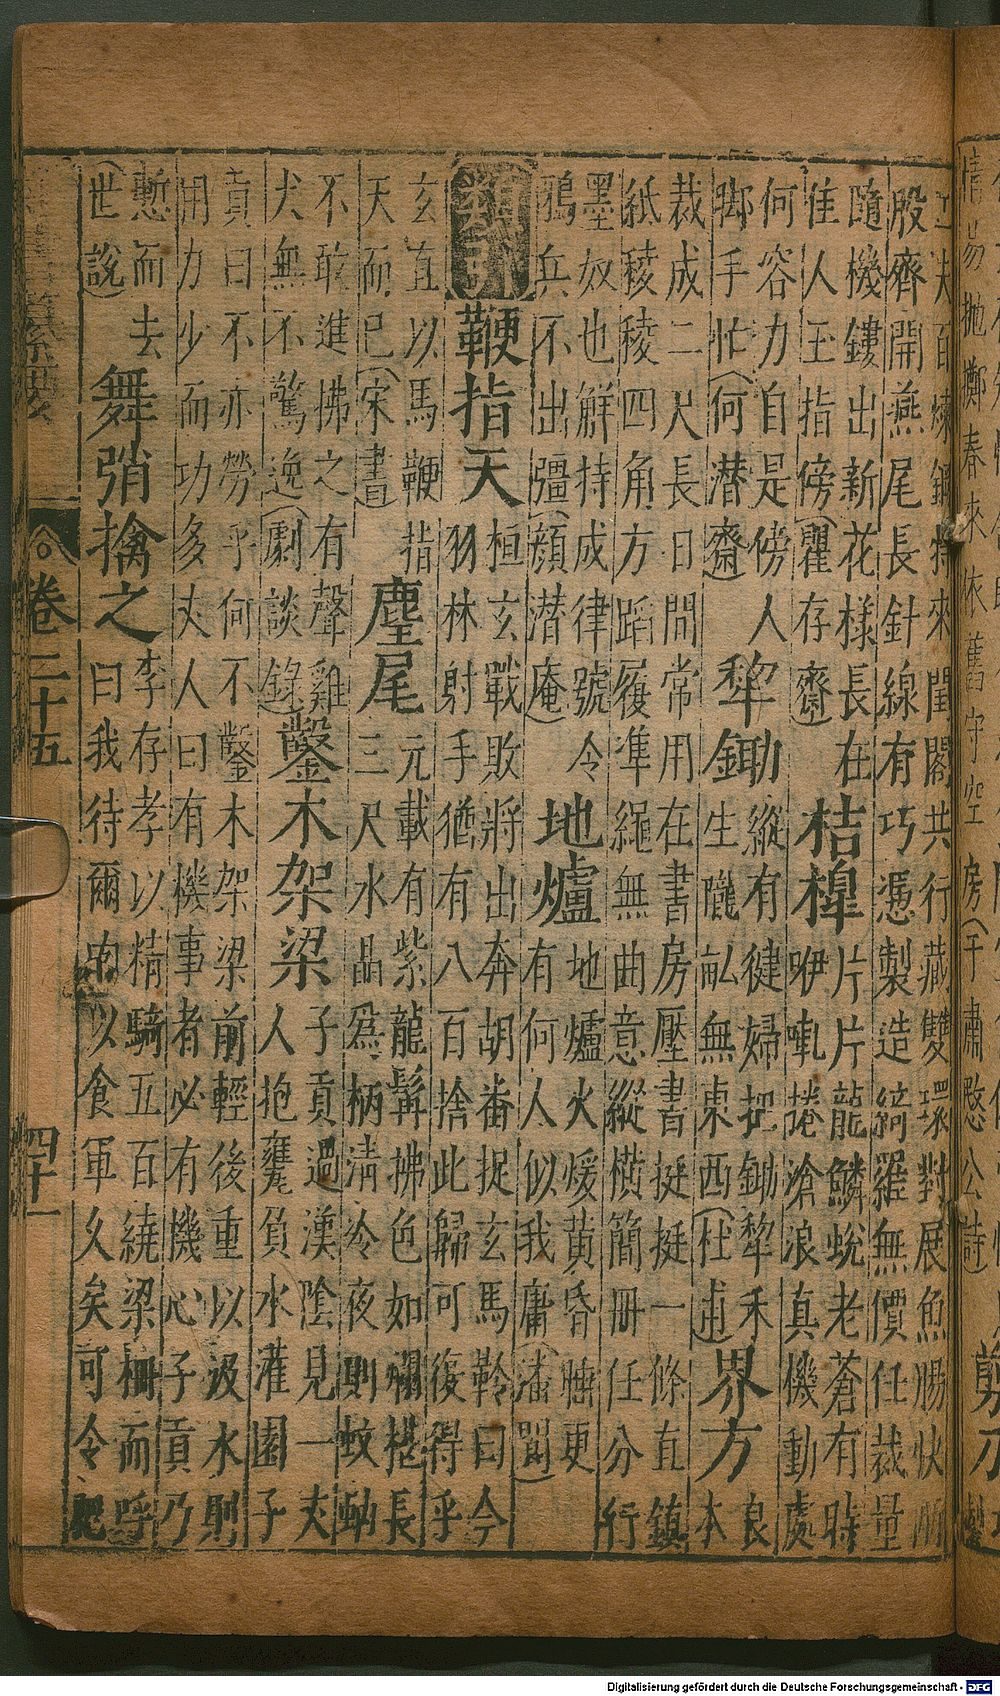 情易拋擲春來依舊守空房(于肅愍公詩)
剪刀
工夫百煉鋼特來閨閣共行藏雙環對展魚腸快兩
股齊開燕尾長針線有巧憑製造綺羅無價任裁量
隨機鏤出新花樣長在
佳人玉指傍(瞿存齋)
桔槹
片片片龍鱗蛻老蒼有時
咿軋捲滄浪真機動處
何容力自是傍人
脚手忙(何潜齋)
犂鋤
縱有健婦把鋤犂禾
生隴畝無東西(杜甫)
界方
良
本
裁成二尺長日間常用在書房壓書挺挺一條直鎮
紙稜稜四角方蹈履準繩無曲意縱橫簡冊任分行
墨奴也鮮持成律號令
鴉兵不出彊(顔潜庵)
地爐
地爐火煖黃昏睡更
有何人似我庸(潘閬)
鞭指天
桓玄戰敗將出奔胡番捉玄馬鞚曰今
羽林射手猶有八百捨此歸可復得乎
玄直以馬鞭指
天而已(宋書)
麈尾
元載有紫龍髯拂色如爛椹長
三尺水晶爲柄清冷夜則蚊蚋
不敢進拂之有聲雞
犬無不驚逸(劇談錄)
鑿木架梁
子貢過漢陰見一丈
人抱甕負水灌園子
貢曰不亦勞乎何不鑿木架梁前輕後重以汲水則
用力少而功多丈人曰有機事者必有機心子貢乃
慙而去
(世說)
舞弰擒之
李存孝以精騎五百繞梁柵而呼
曰我待爾肉以食軍久矣可令肥
卷二十五
四十一
Digitalisierung gefördert durch die Deutsche Forschungsgemeinschaft - DFG